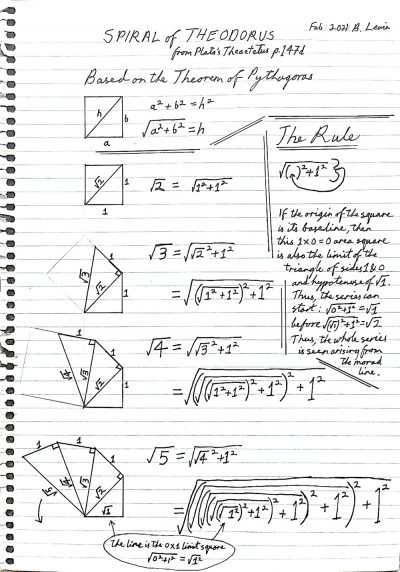 SPIRAL of THEODORUS
Feb. 2021 B. Levin
from Plato's Theaetetus p.147d
Based on the Theorem of Pythagoras
h
b
a
a² + b² = h²
√a² + b² = h
The Rule
√( )² + 1²
If the origin of the square
is its baseline, then
this 1x0=0 area square
is also the limit of the
triangle of sides 1 & 0
and hypotenuse of √1.
Thus, the series can
start: √0²+1² = √1
before √(√1)²+1² = √2
Thus, the whole series
is seen arising from
the monad
line.
√2
1
1
√2 = √1² + 1²
1
√3
√2
1
√3 = √√2² + 1²
= √(√(1² + 1²)² + 1²
1
1
√4
√3
√2
1
√4 = √√3² + 1²
= √(√(√1² + 1²)² + 1²)² + 1²
1
1
1
√5
√4
√3
√2
√1
√5 = √√4² + 1²
= √(√(√(√1²)² + 1²)² + 1²)² + 1²)² + 1²
The line is the 0x1 limit square
√0² + 1² = √1²